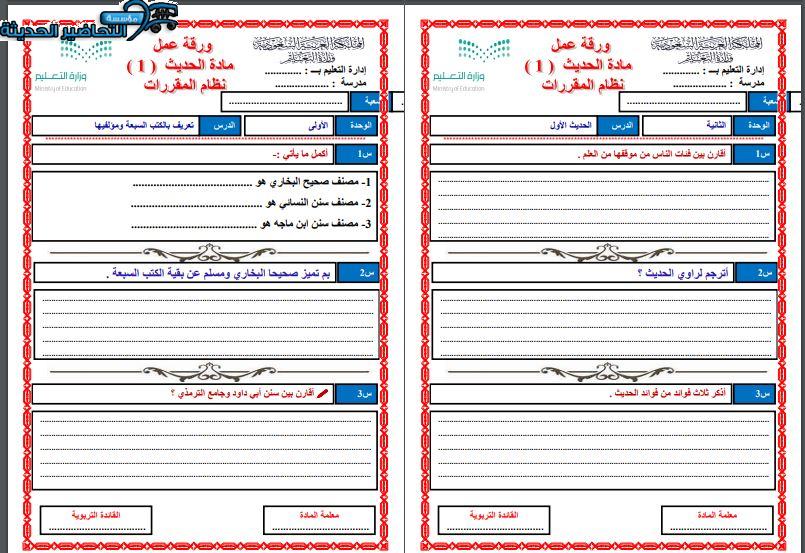 مؤسسة
التحاضير الحديثة
المملكة العربية السعودية
وزارة التعليم
إدارة التعليم بـــ : .............
مدرسة : ......................
ورقة عمل
مادة الحديث ( 1 )
نظام المقررات
وزارة التعليم
Ministry of Education
الوحدة
الثانية
الدرس
الحديث الأول
س1
أقارن بين فئات الناس من موقفها من العلم .
س2
أترجم لراوي الحديث ؟
س3
أذكر ثلاث فوائد من فوائد الحديث .
معلمة المادة
القائدة التربوية
المملكة العربية السعودية
وزارة التعليم
إدارة التعليم بـــ : .............
مدرسة : ......................
ورقة عمل
مادة الحديث ( 1 )
نظام المقررات
وزارة التعليم
Ministry of Education
الوحدة
الأولى
الدرس
تعريف بالكتب السبعة ومؤلفيها
س1
أكمل ما يأتي :-
1- مصنف صحيح البخاري هو ........................................
2- مصنف سنن النسائي هو ............................................
3- مصنف سنن ابن ماجه هو ..........................................
س2
بم تميز صحيحا البخاري ومسلم عن بقية الكتب السبعة .
س3
أقارن بين سنن أبي داود وجامع الترمذي ؟
معلمة المادة
القائدة التربوية